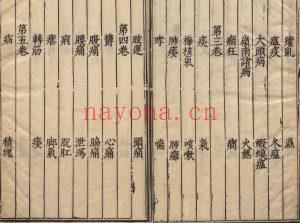 癃
濕
瘟疫
冬瘟
大頭病
蝦蟆瘟
嶺南諸病
火熱
癲狂
癇
第三卷
痰
氣
梅核氣
咳嗽
肺痿
肺癰
哮
喘
眩運
頭痛
第四卷
鬱
心痛
腹痛
腸痛
腰痛
泄瀉
痢
脫肛
瘧
脚氣
轉筋
痿
第五卷
痞
積塊
nayona.cn